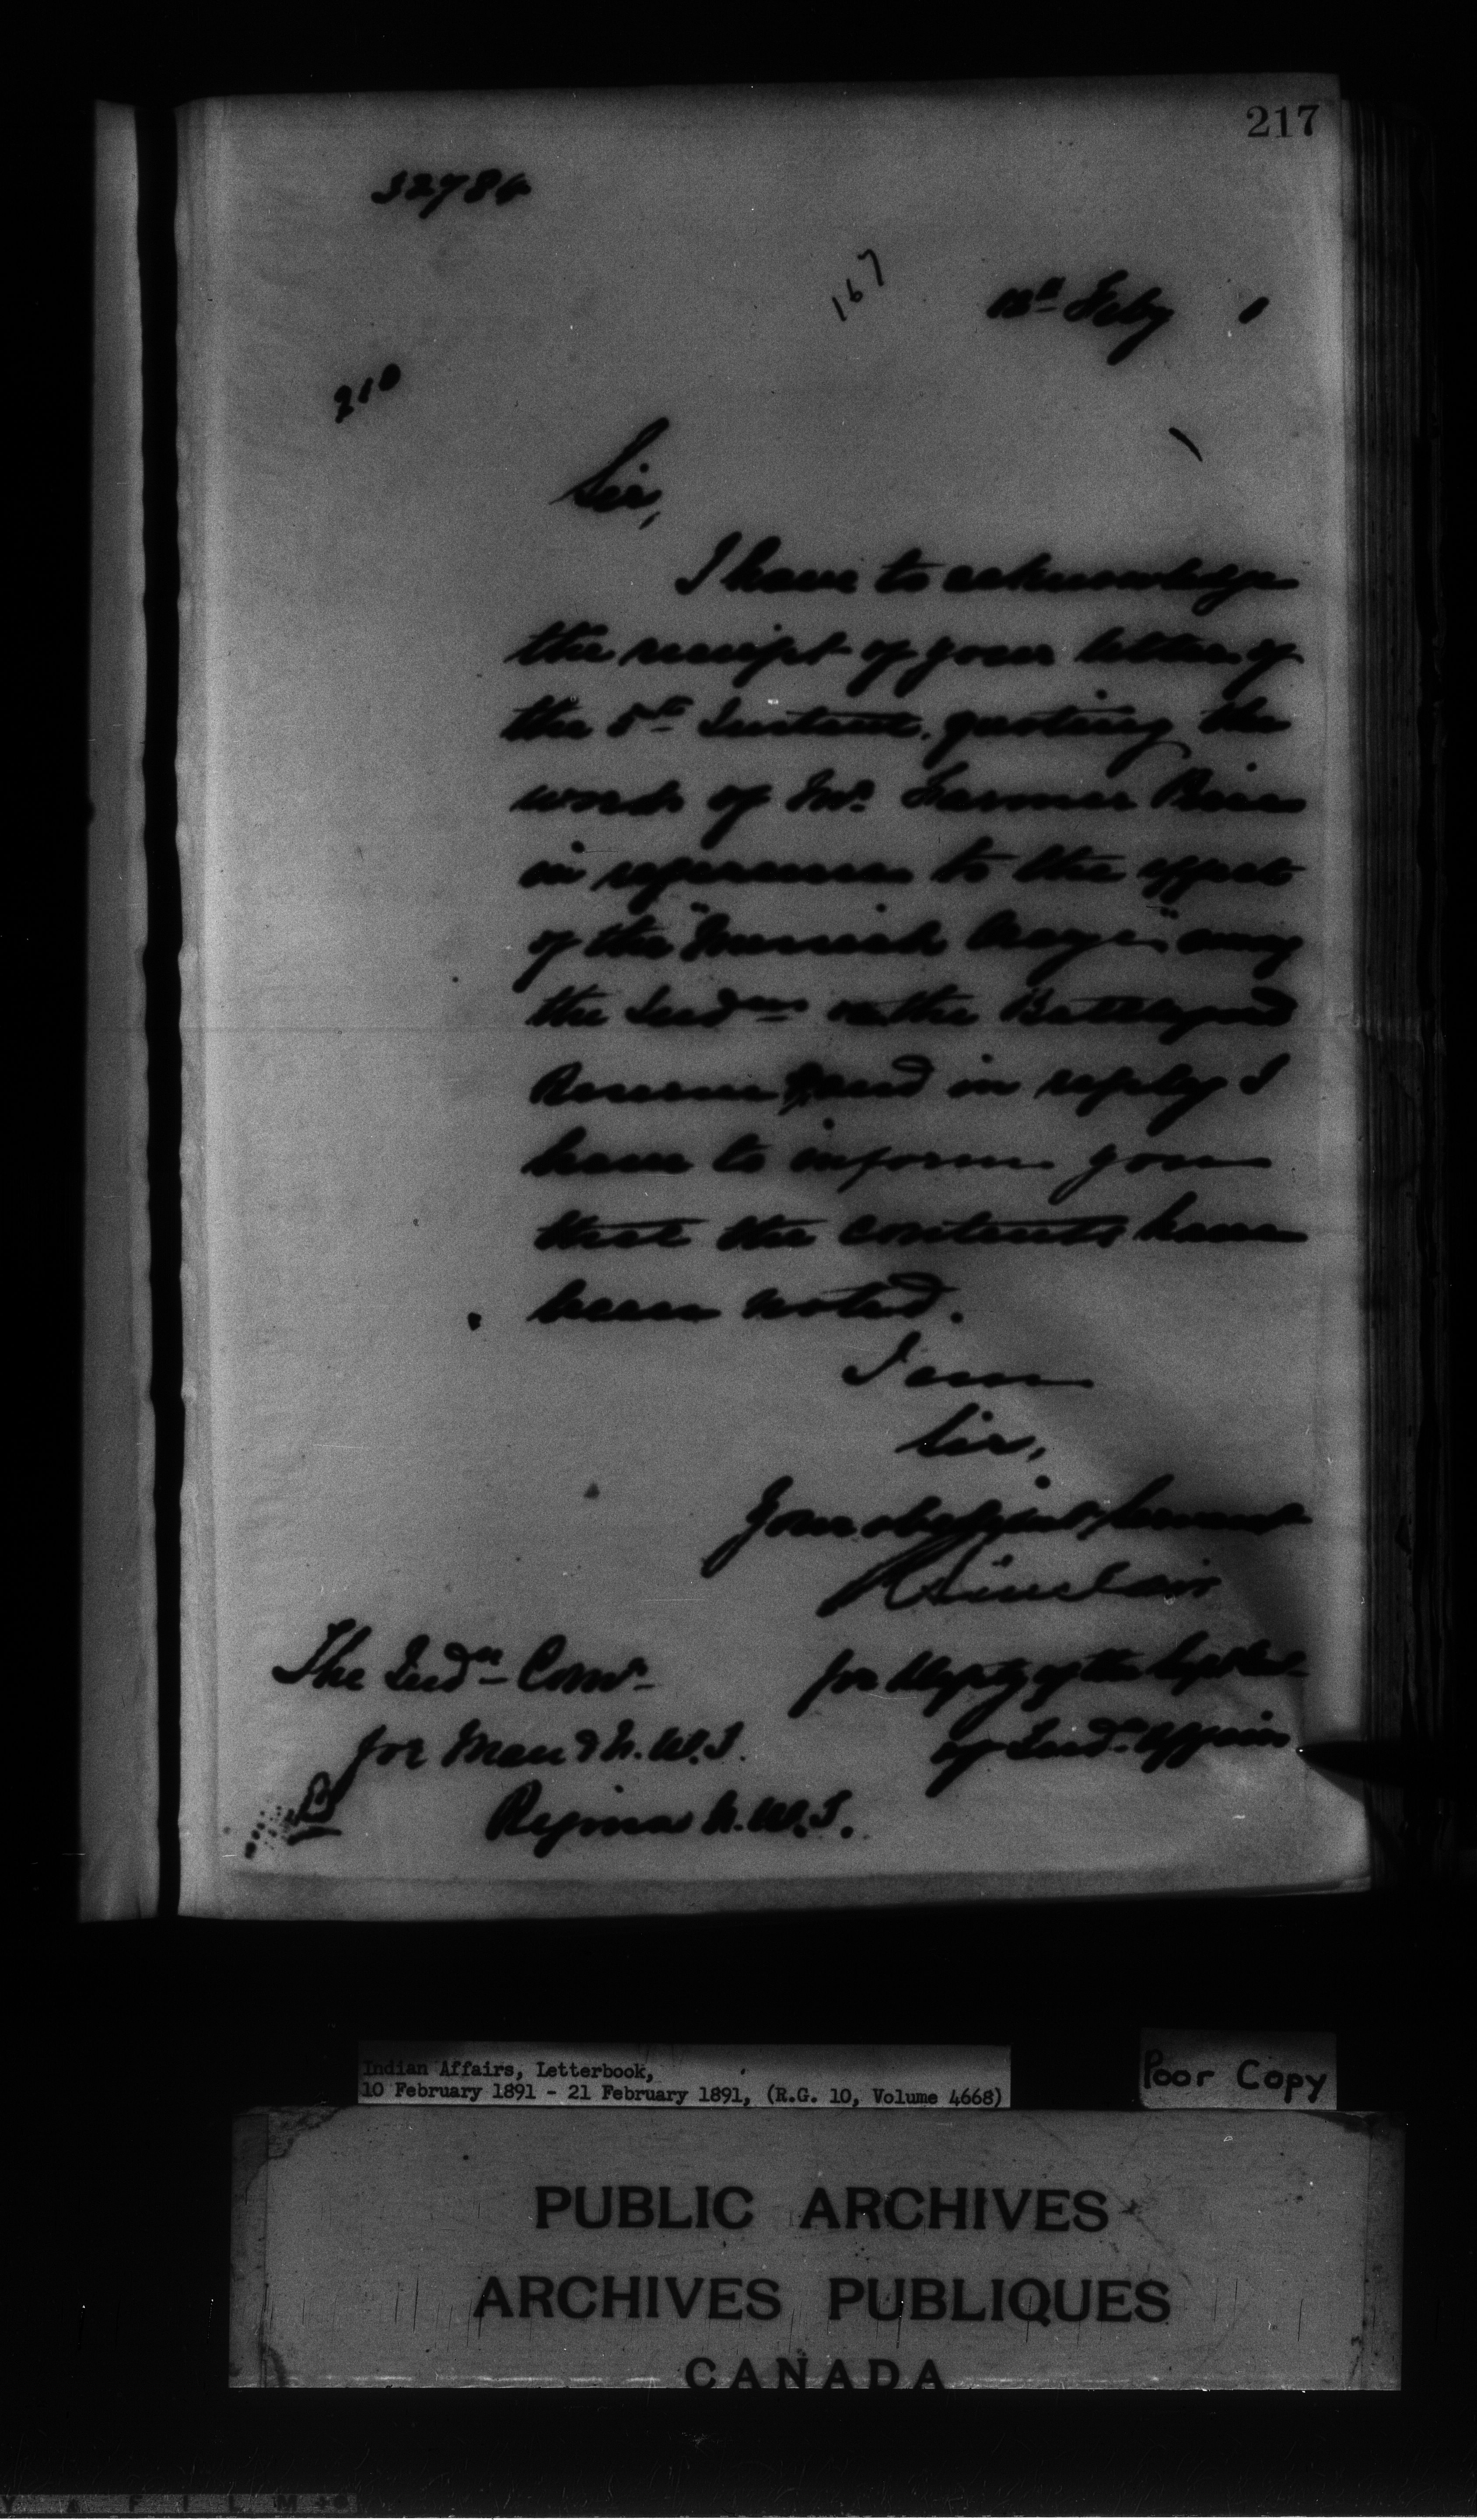 217
32784
167
12th Feby 1
210
Sir,
I have to acknowledge
the receipt of your letter of
the 5th Instant, quoting the
words of Mr. Farmer
in reference to the effect
of the "Messiah Craze" among
the Indns on the
Reserve and in reply I
have to inform you
that the contents have
been noted.
I am
Sir,
Your obedient servant
R Sinclair
The Indn Comr
for Deputy of the Supt Genl
for Man & N.W.T.
of Indn Affairs
Regina N.W.T.
Indian Affairs, Letterbook,
10 February 1891 - 21 February 1891, (R.G. 10, Volume 4668)
Poor Copy
PUBLIC ARCHIVES
ARCHIVES PUBLIQUES
CANADA